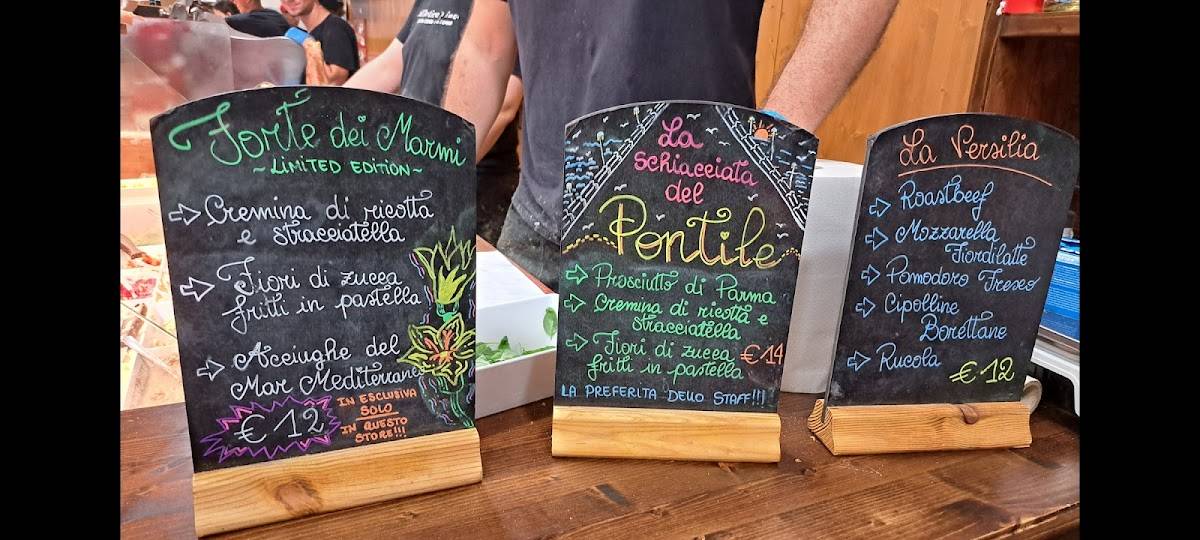 Forte dei Marmi
~ LIMITED EDITION ~
Cremina di ricotta
e stracciatella
Fiori di zucca
fritti in pastella
Acciughe del
Mar Mediterraneo
€ 12
IN ESCLUSIVA
SOLO
IN QUESTO
STORE!!!
La
schiacciata
del
Pontile
Prosciutto di Parma
Cremina di ricotta e
stracciatella
Fiori di zucca
fritti in pastella
€ 14
LA PREFERITA DELLO STAFF!!!
La Versilia
Roastbeef
Mozzarella
Fiordilatte
Pomodoro Fresco
Cipolline
Borettane
Rucola
€ 12